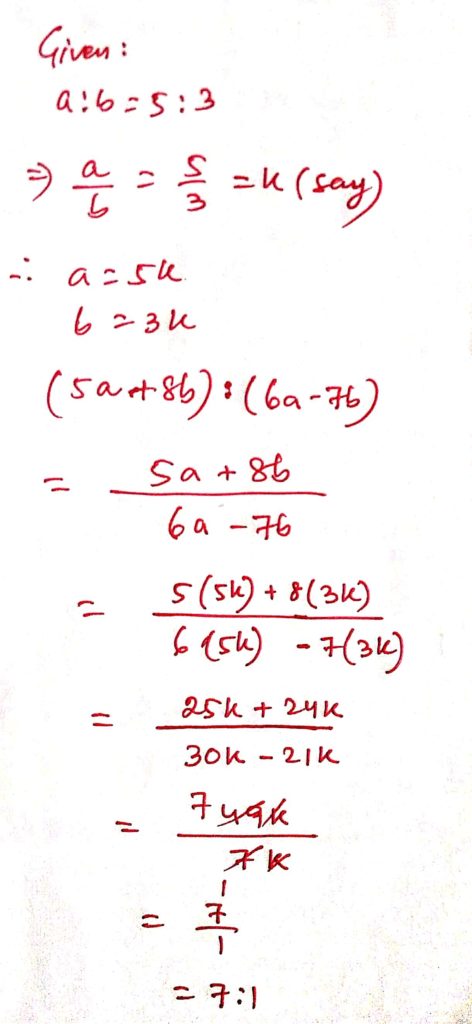 Given:
a:b = 5:3
⇒ a/b = 5/3 = k (say)
∴ a = 5k
b = 3k
(5a + 8b) : (6a - 7b)
= (5a + 8b)/(6a - 7b)
= (5(5k) + 8(3k))/(6(5k) - 7(3k))
= (25k + 24k)/(30k - 21k)
= 7 49k/7k
1
= 7/1
= 7:1